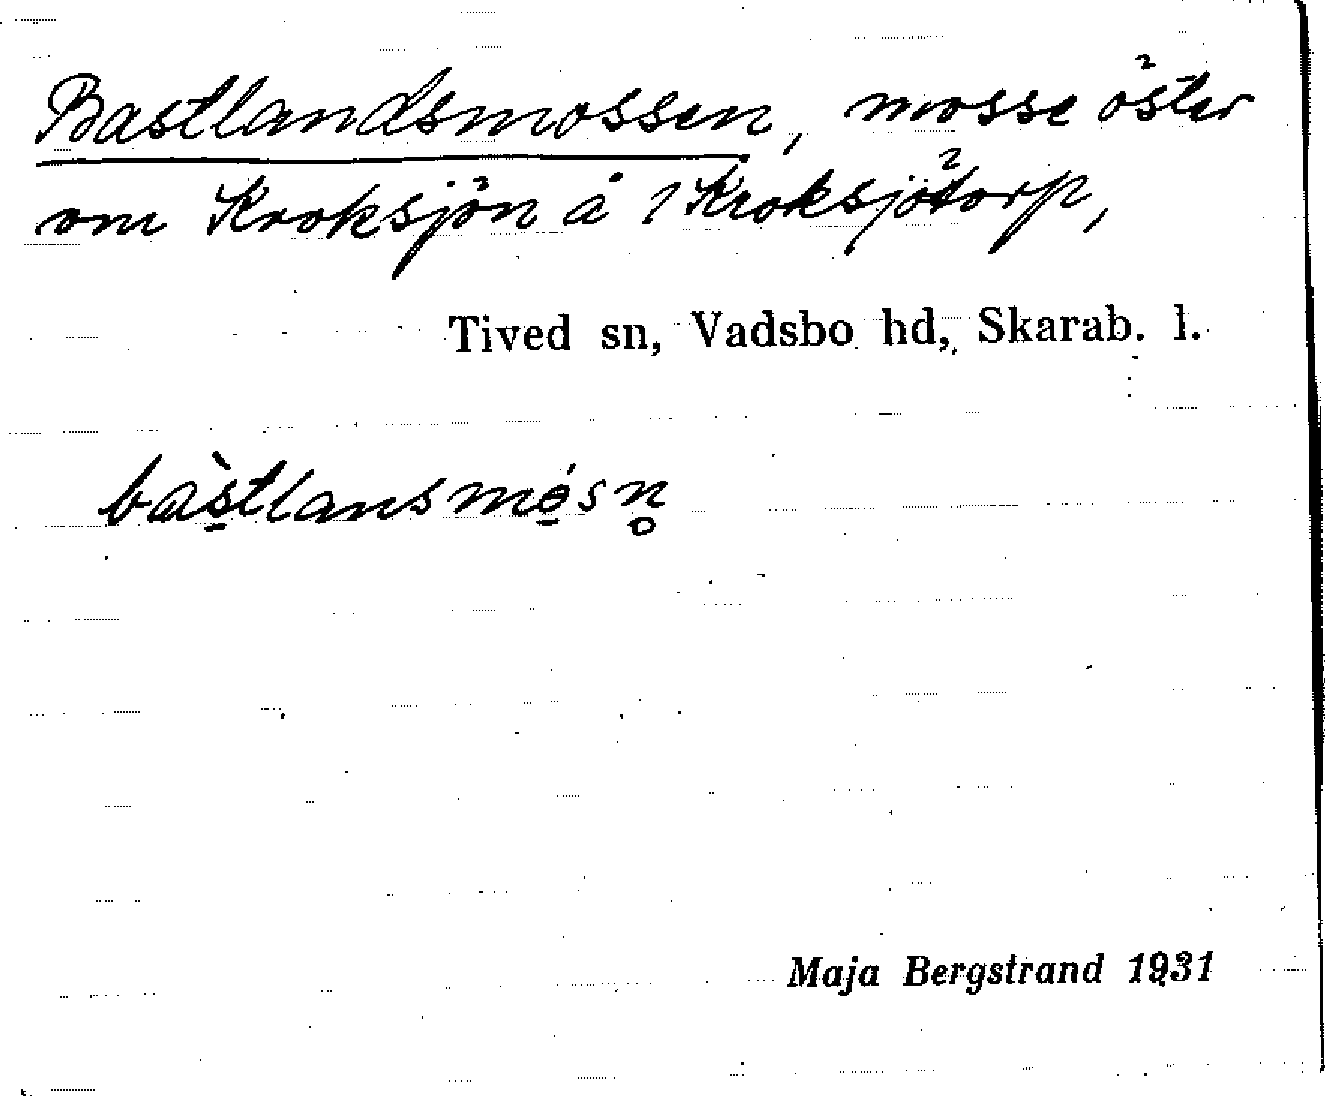 Bastlandsmossen, mosse öster
om Kroksjön å 1 Kroksjötorp,
Tived sn, Vadsbo hd, Skarab. l.
bàstlansmósn̥
Maja Bergstrand 1931